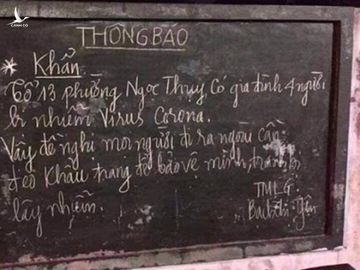 THÔNG BÁO
* Khẩn
Tổ 13 phường Ngọc Thụy Có gia đình 4 người
bị nhiễm Virus Corona.
Vậy đề nghị mọi người đi ra ngoài cần
đeo Khẩu trang để bảo vệ mình, tránh bị
lây nhiễm.